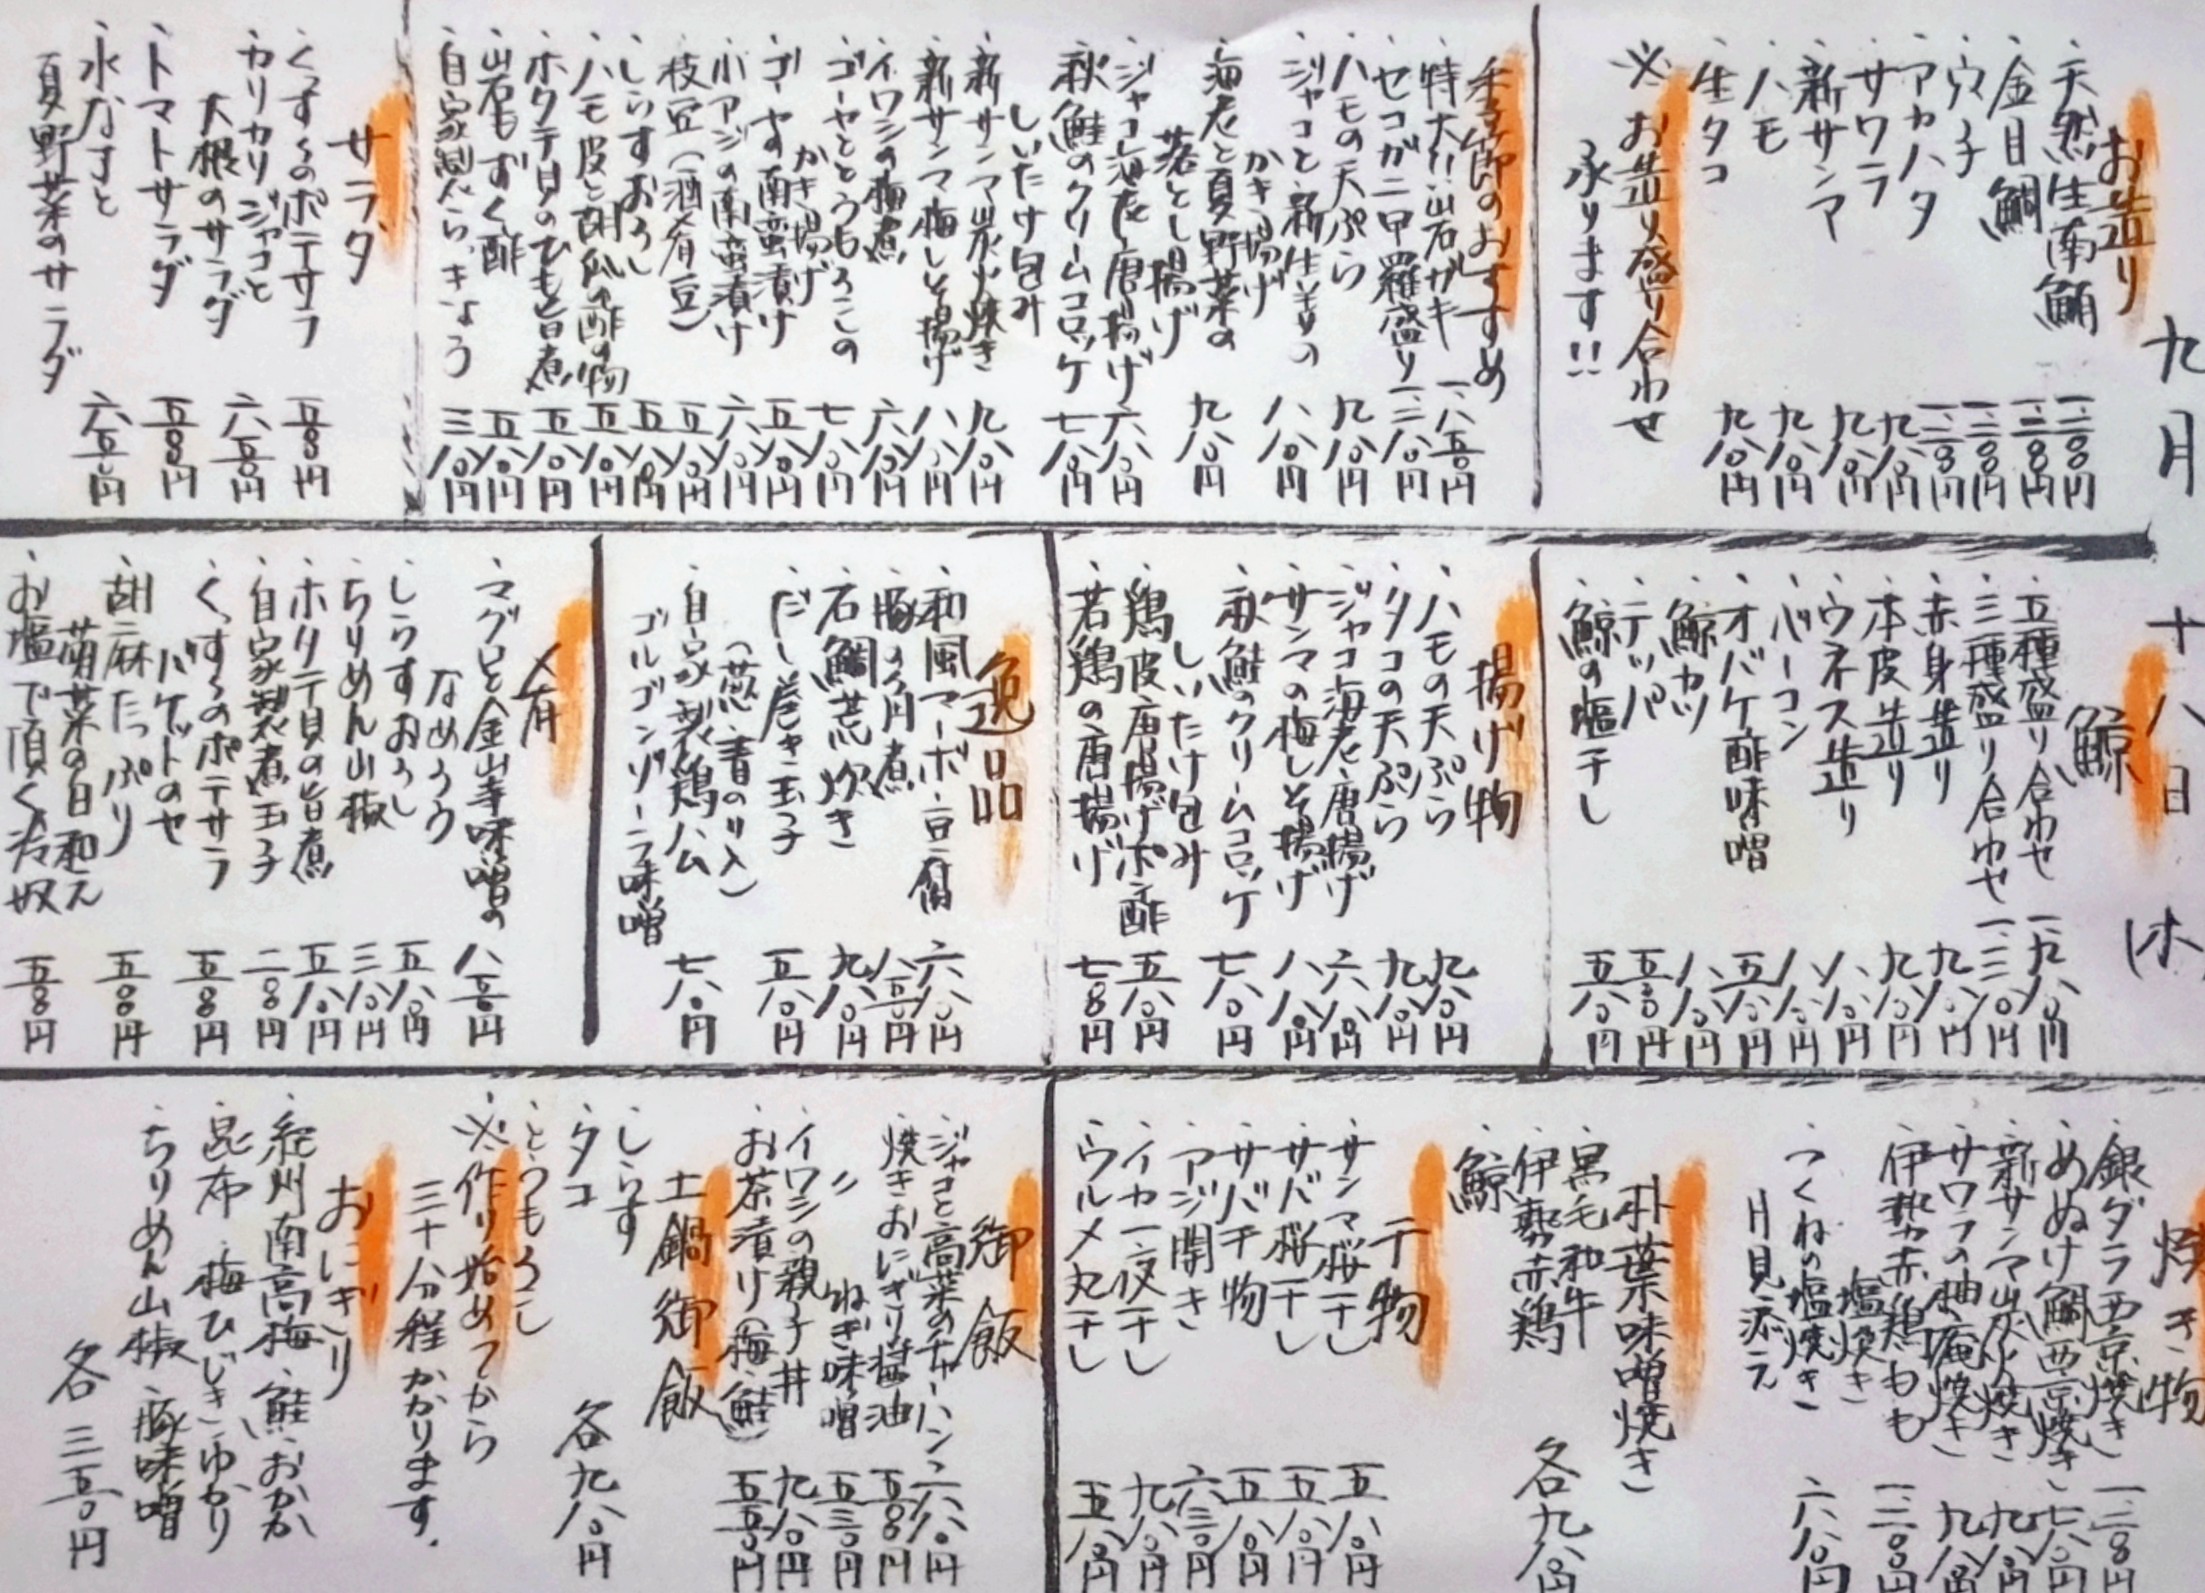 九月十八日 休
お造り
・天然生南鮪 一、二〇〇円
・金目鯛 一、二〇〇円
・ウニ 一、二〇〇円
・アカハタ 一、二〇〇円
・サワラ 九八〇円
・新サンマ 九八〇円
・ハモ 九八〇円
・生タコ 九八〇円
※お造り盛り合わせ
承ります!!
季節のおすすめ
・特大!!岩ガキ 一、八五〇円
・セコガニ甲羅盛り 一、三八〇円
・ハモの天ぷら 九八〇円
・ジャコと新生姜の
かき揚げ 八八〇円
・海老と夏野菜の
落とし揚げ 九八〇円
・ジャコ海老唐揚げ 六八〇円
・秋鮭のクリームコロッケ
しいたけ包み 七八〇円
・新サンマ炭火焼き 九八〇円
・新サンマ梅しそ揚げ 八八〇円
・イワシの梅煮 六八〇円
・ゴーヤととうもろこしの
かき揚げ 七八〇円
・ゴーヤの南蛮漬け 五八〇円
・小アジの南蛮漬け 六八〇円
・枝豆(酒肴豆) 五八〇円
・しらすおろし 五八〇円
・ハモ皮と胡瓜の酢の物 五八〇円
・ホタテ貝のひも旨煮 五八〇円
・岩もずく酢 五八〇円
・自家製べらっきょう 三八〇円
サラダ
・くっすくのポテサラ 五〇〇円
・カリカリジャコと
大根のサラダ 六五〇円
・トマトサラダ 五〇〇円
・水なすと
夏野菜のサラダ 六五〇円
鯨
・五種盛り合わせ 一、九八〇円
・三種盛り合わせ 一、三八〇円
・赤身造り 九八〇円
・本皮造り 九八〇円
・ウネス造り 八八〇円
・ベーコン 八八〇円
・オバケ酢味噌 五八〇円
・鯨カツ 八八〇円
・テッパ 五〇〇円
・鯨の塩干し 五八〇円
揚げ物
・ハモの天ぷら 九八〇円
・タコの天ぷら 九八〇円
・ジャコ海老唐揚げ 六八〇円
・サンマの梅しそ揚げ 八八〇円
・秋鮭のクリームコロッケ
しいたけ包み 七八〇円
・鶏皮唐揚げポン酢 五八〇円
・若鶏の唐揚げ 七五〇円
逸品
・和風マーボー豆腐 六八〇円
・豚の角煮 八五〇円
・石鯛荒炊き 九八〇円
・だし巻き玉子
(葱・青のり入) 五八〇円
・自家製鶏ハム
ゴルゴンゾーラ味噌 七八〇円
肴
・マグロと金山寺味噌の
なめろう 八五〇円
・しらすおろし 五八〇円
・ちりめん山椒 三八〇円
・ホタテ貝の旨煮 五八〇円
・自家製煮玉子 二〇〇円
・くっすくのポテサラ
バケットのせ 五〇〇円
・胡麻たっぷり
菊菜の白和え 五〇〇円
・お塩で頂く冷奴 五〇〇円
焼き物
・銀ダラ西京焼き 一、二〇〇円
・めぬけ鯛西京焼き 七八〇円
・新サンマ炭火焼き 九八〇円
・サワラの柚庵焼き 九八〇円
・伊勢赤鶏もも
塩焼き 一、二〇〇円
・つくねの塩焼き
月見添え 六八〇円
朴葉味噌焼き
・黒毛和牛
・伊勢赤鶏
・鯨
各九八〇円
干物
・サンマ桜干し 五八〇円
・サバ桜干し 五八〇円
・サバ干物 五八〇円
・アジ開き 六三〇円
・イカ一夜干し 九八〇円
・ウルメ丸干し 五八〇円
御飯
・ジャコと高菜のチャーハン 六八〇円
・焼きおにぎり醤油 五〇〇円
・〃 ねぎ味噌 五三〇円
・イワシの親子丼 九八〇円
・お茶漬け(梅・鮭) 五五〇円
土鍋御飯
・しらす
・タコ
・とうもろこし
各九八〇円
※作り始めてから
三十分程かかります.
おにぎり
・紀州南高梅・鮭・おかか
・昆布・梅ひじき・ゆかり
・ちりめん山椒・豚味噌
各三五〇円